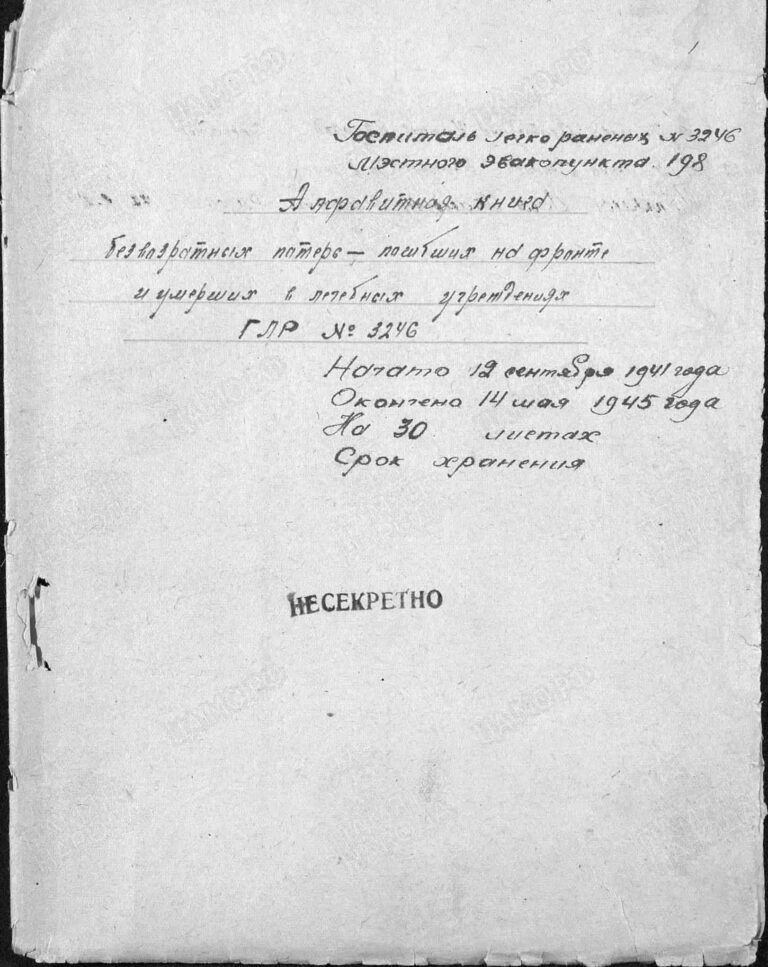 Госпиталь легко раненых № 3246
Местного эвакопункта 198
Алфавитная книга
безвозвратных потерь — погибших на фронте
и умерших в лечебных учреждениях
ГЛР № 3246
Начато 12 сентября 1941 года
Окончено 14 мая 1945 года
На 30 листах
Срок хранения
НЕСЕКРЕТНО